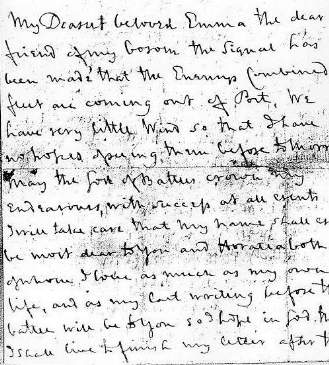 My Dearest beloved Emma the dear
friend of my bosom the Signal has
been made that the Enemys Combined
fleet are coming out of Port, We
have very little Wind so that I have
no hopes of seeing them before tomorr
May the God of Battles crown my
Endeavours with success at all events
I will take care that my name shall e
be most dear to you and Horatia both
of whom I love as much as my own
life, and as my last writing before th
battle will be to you so I hope in God th
I shall live to finish my letter after t